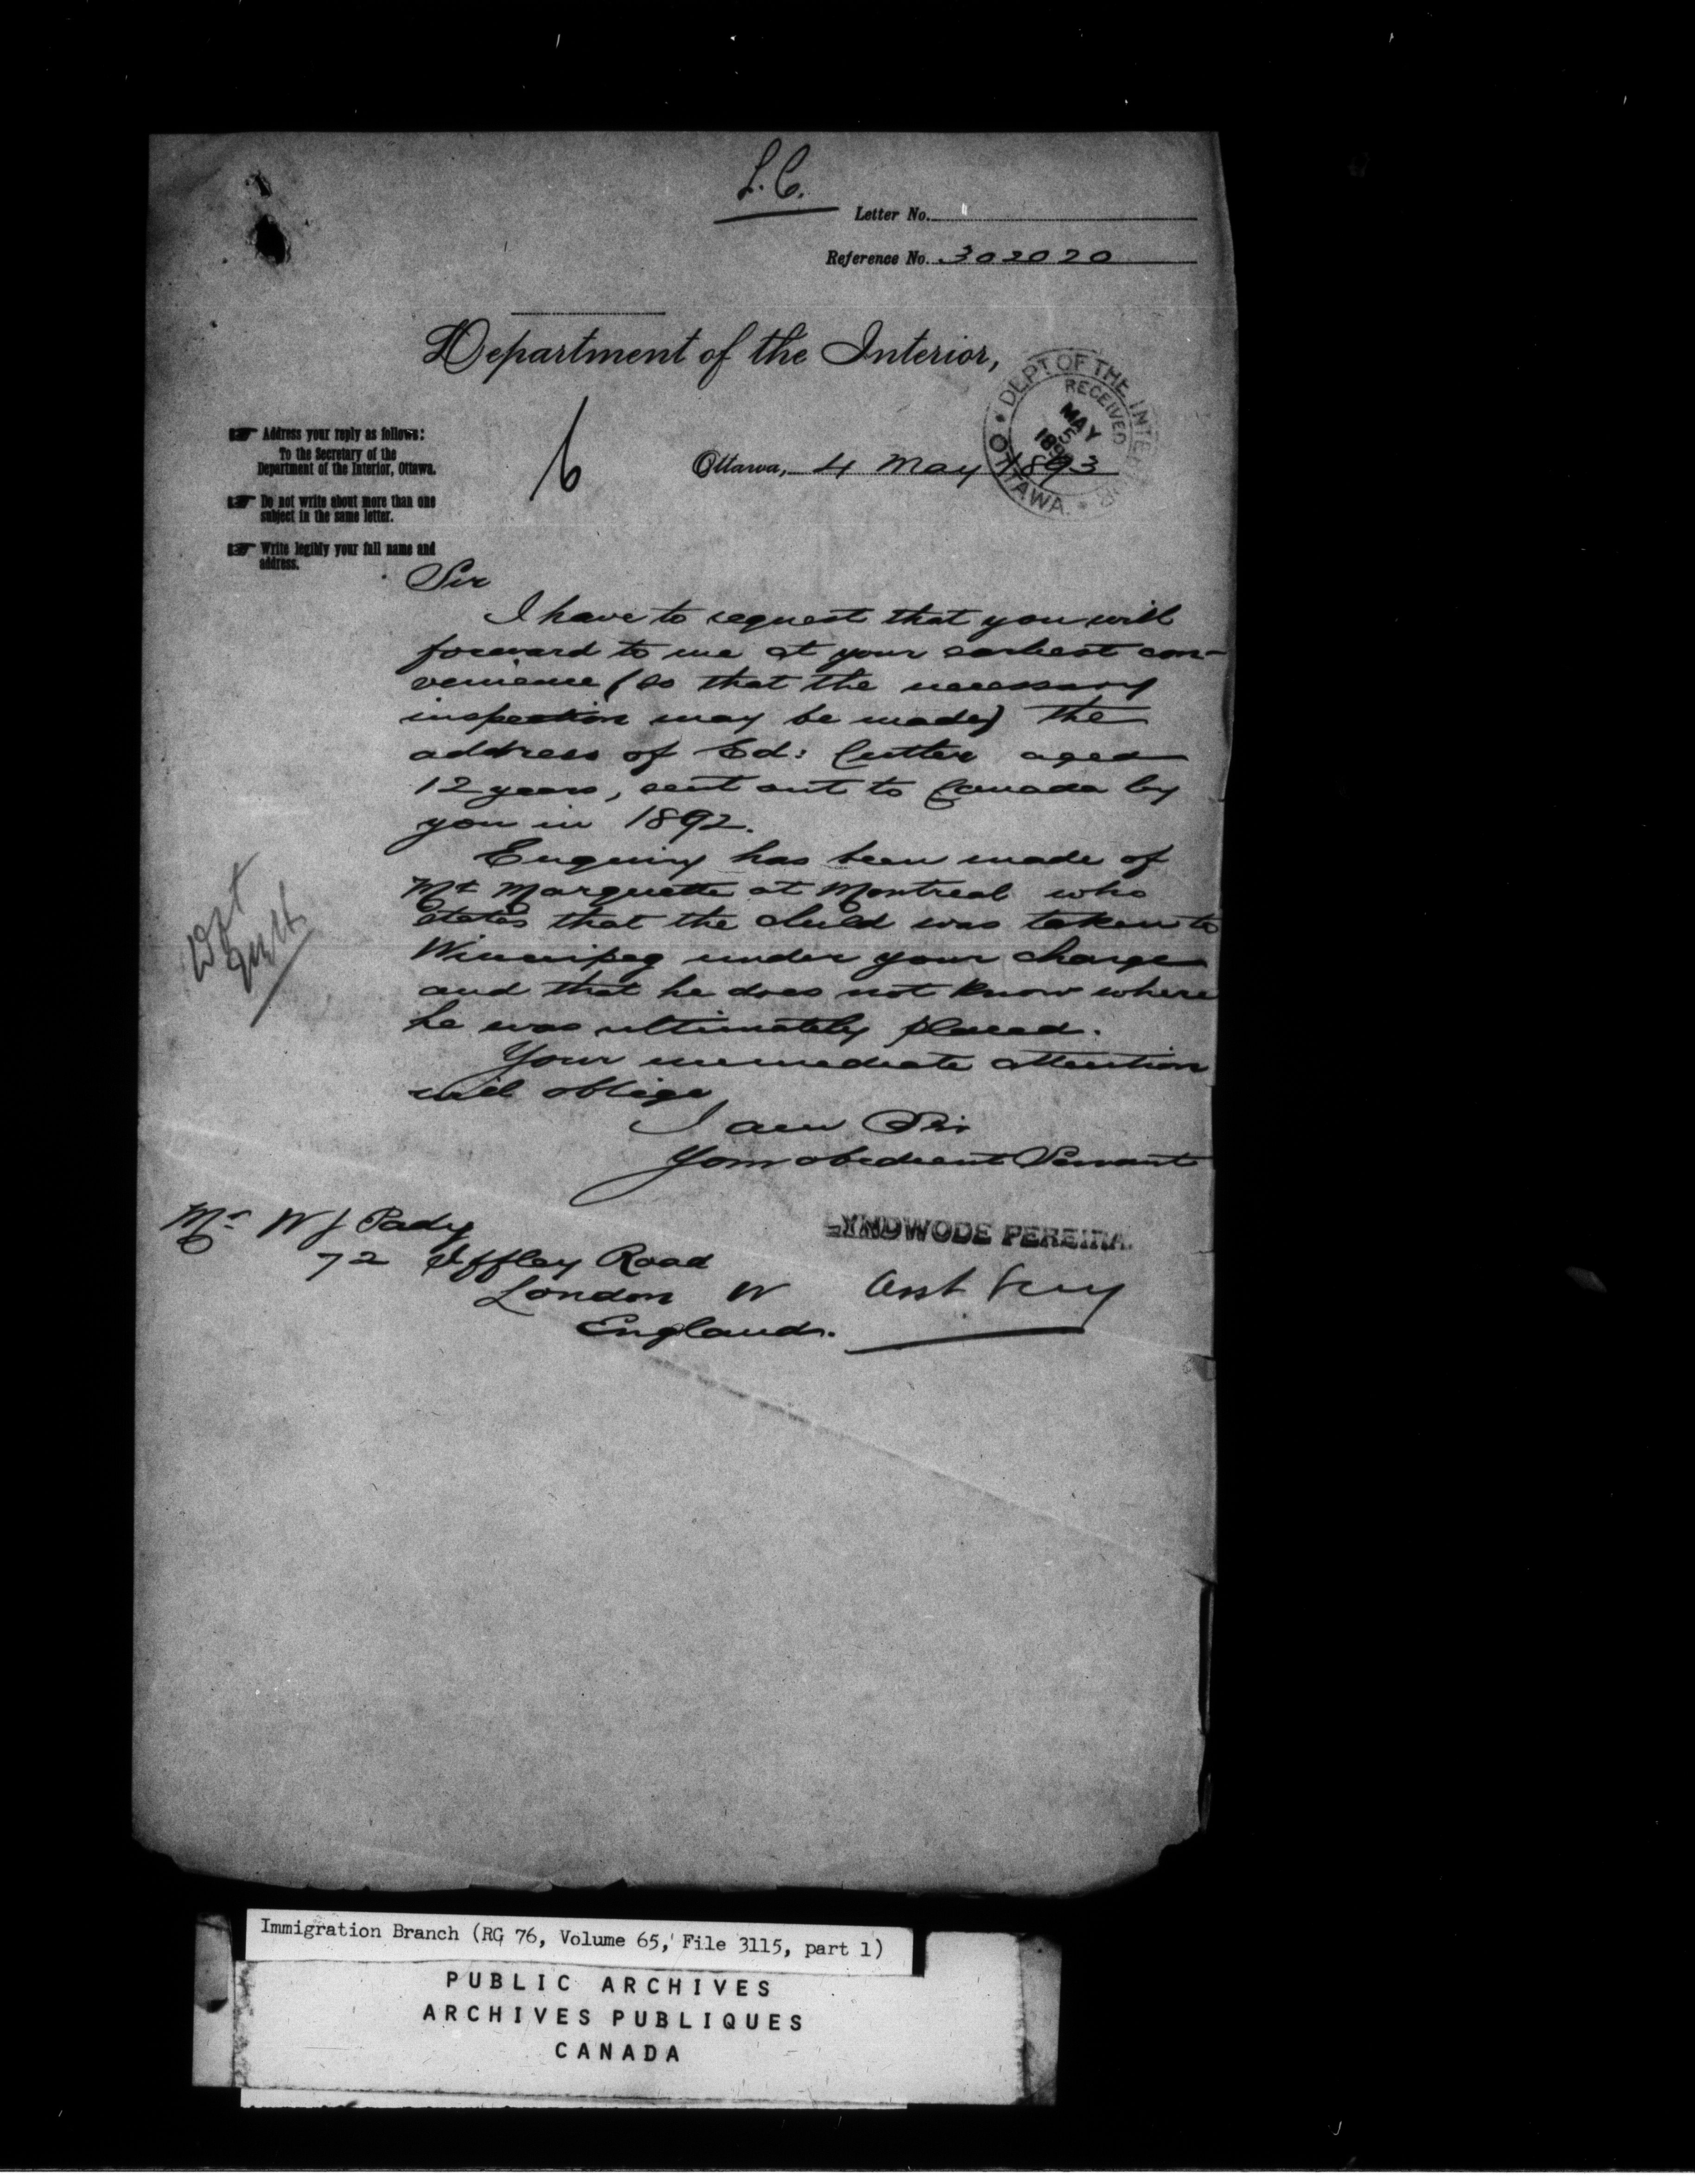 L.C.
Letter No.
Reference No. 302020
Department of the Interior,
DEPT OF THE INTERIOR
RECEIVED
MAY
5
1893
OTTAWA.
Address your reply as follows:
To the Secretary of the
Department of the Interior, Ottawa.
Do not write about more than one
subject in the same letter.
Write legibly your full name and
address.
6
Ottawa, 4 May 1893
Sir
I have to request that you will
forward to me at your earliest con-
venience (so that the necessary
inspection may be made) the
address of Ed: Cutter aged
12 years, sent out to Canada by
you in 1892.
Enquiry has been made of
Mr Marquette at Montreal who
states that the child was taken to
Winnipeg under your charge
and that he does not know where
he was ultimately placed.
Your immediate attention
will oblige
I am Sir
Your obedient Servant
LYNDWODE PEREIRA.
Asst Secy
Mr W J Pady
72 Iffley Road
London W
England.
Immigration Branch (RG 76, Volume 65, File 3115, part 1)
PUBLIC ARCHIVES
ARCHIVES PUBLIQUES
CANADA